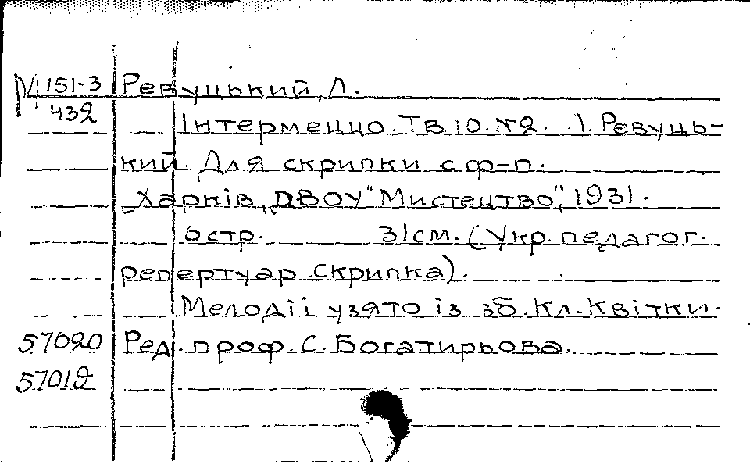 М 151-3 Ревуцький, Л.
432
Інтермеццо. Тв 10. №2. Л. Ревуць-
кий. Для скрипки с ф-п.
Харків, ДВОУ "Мистецтво", 1931.
8 стр. 31см. (Укр. педагог.
репертуар. Скрипка).
Мелодії узято із зб. Кл. Квітки.
57020 Ред. проф. С. Богатирьова.
57012